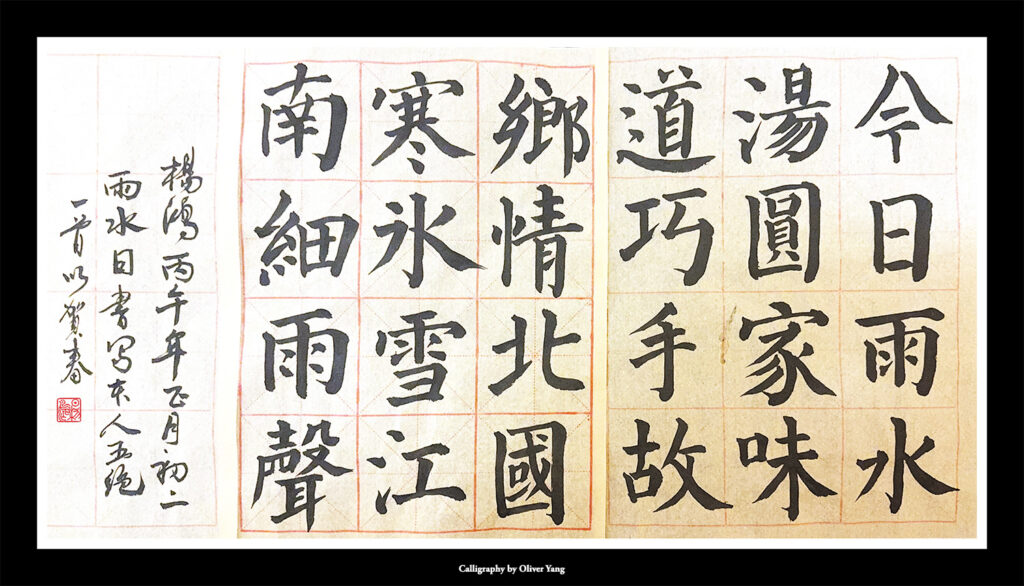 今日雨水
湯圓家味
道巧手故
鄉情北國
寒氷雪江
南細雨聲
楊鴻丙午年正月初二
雨水日書写本人五绝
一首以賀春
Calligraphy by Oliver Yang